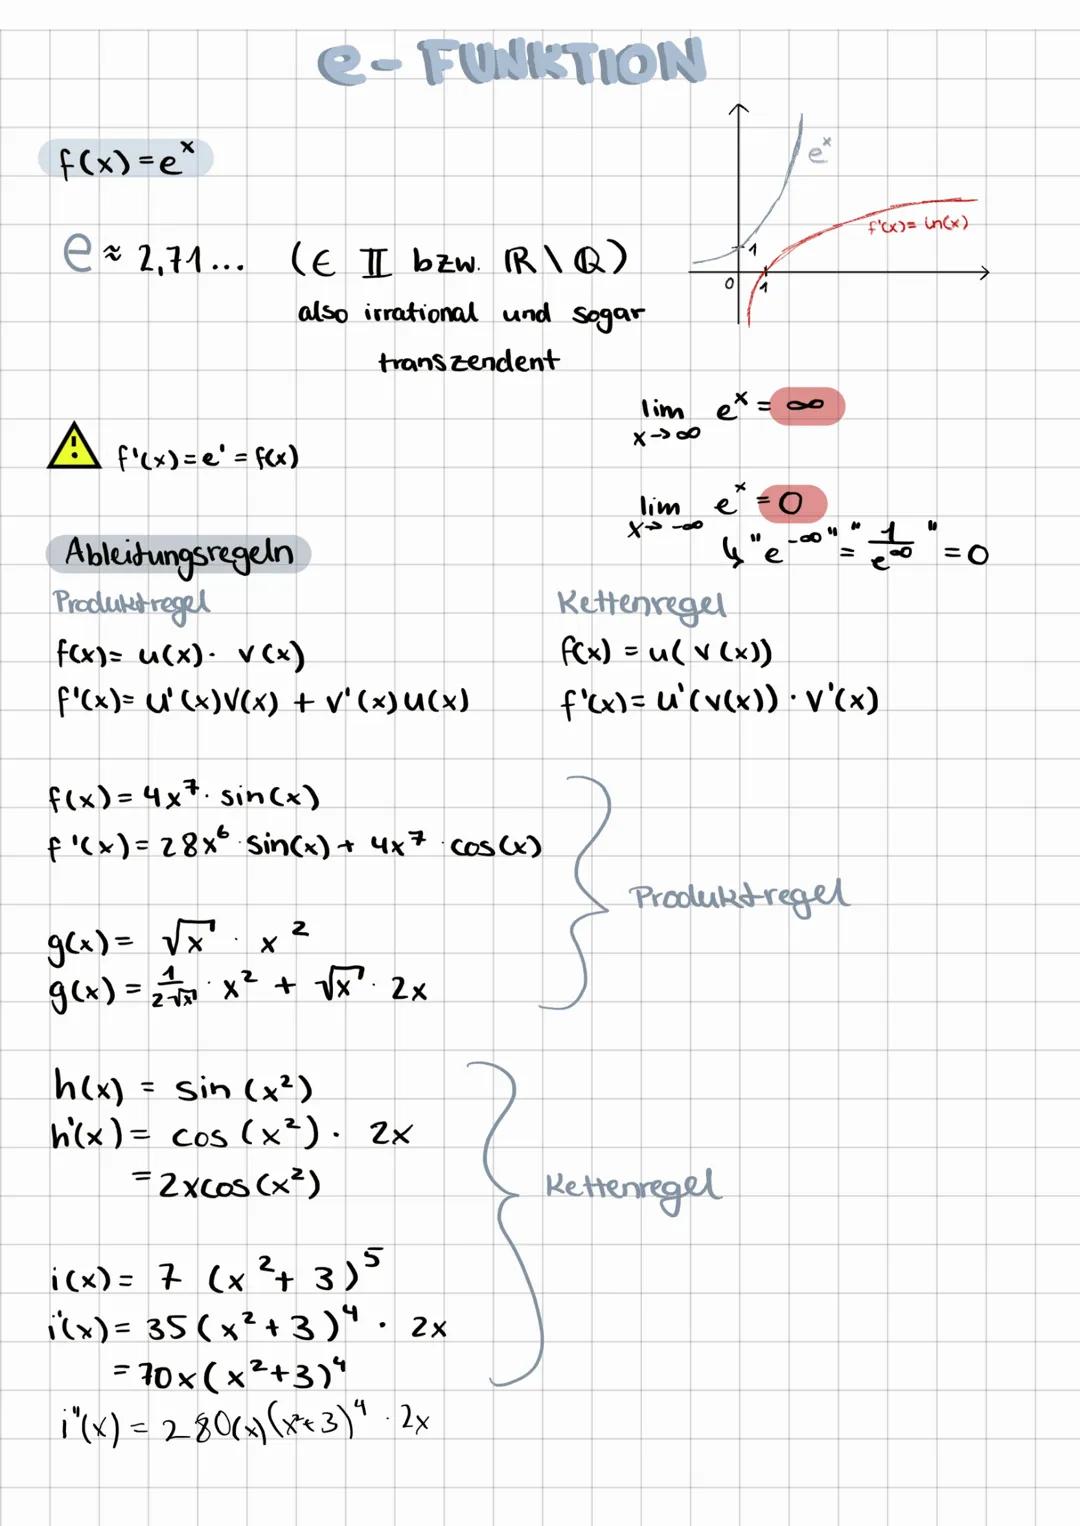 e - FUNKTION
f(x) = eˣ
eˣ
f'(x) = ln(x)
1
0
1
e ≈ 2,71... (∈ 𝕀 bzw. ℝ \ ℚ)
also irrational und sogar
transzendent
lim eˣ = ∞
x→∞
! f'(x) = e' = f(x)
lim eˣ = 0
x→ -∞
↳ "e^-∞" = "1/e^∞" = 0
Ableitungsregeln
Produktregel
f(x) = u(x) · v(x)
f'(x) = u'(x)v(x) + v'(x)u(x)
Kettenregel
f(x) = u(v(x))
f'(x) = u'(v(x)) · v'(x)
f(x) = 4x⁷ · sin(x)
f'(x) = 28x⁶ · sin(x) + 4x⁷ · cos(x)
Produktregel
g(x) = √x · x²
g(x) = 1/(2√x) · x² + √x · 2x
h(x) = sin(x²)
h'(x) = cos(x²) · 2x
= 2xcos(x²)
Kettenregel
i(x) = 7 (x² + 3)⁵
i'(x) = 35(x² + 3)⁴ · 2x
= 70x(x²+3)⁴
i"(x) = 280(x)(x²+3)⁴ · 2x